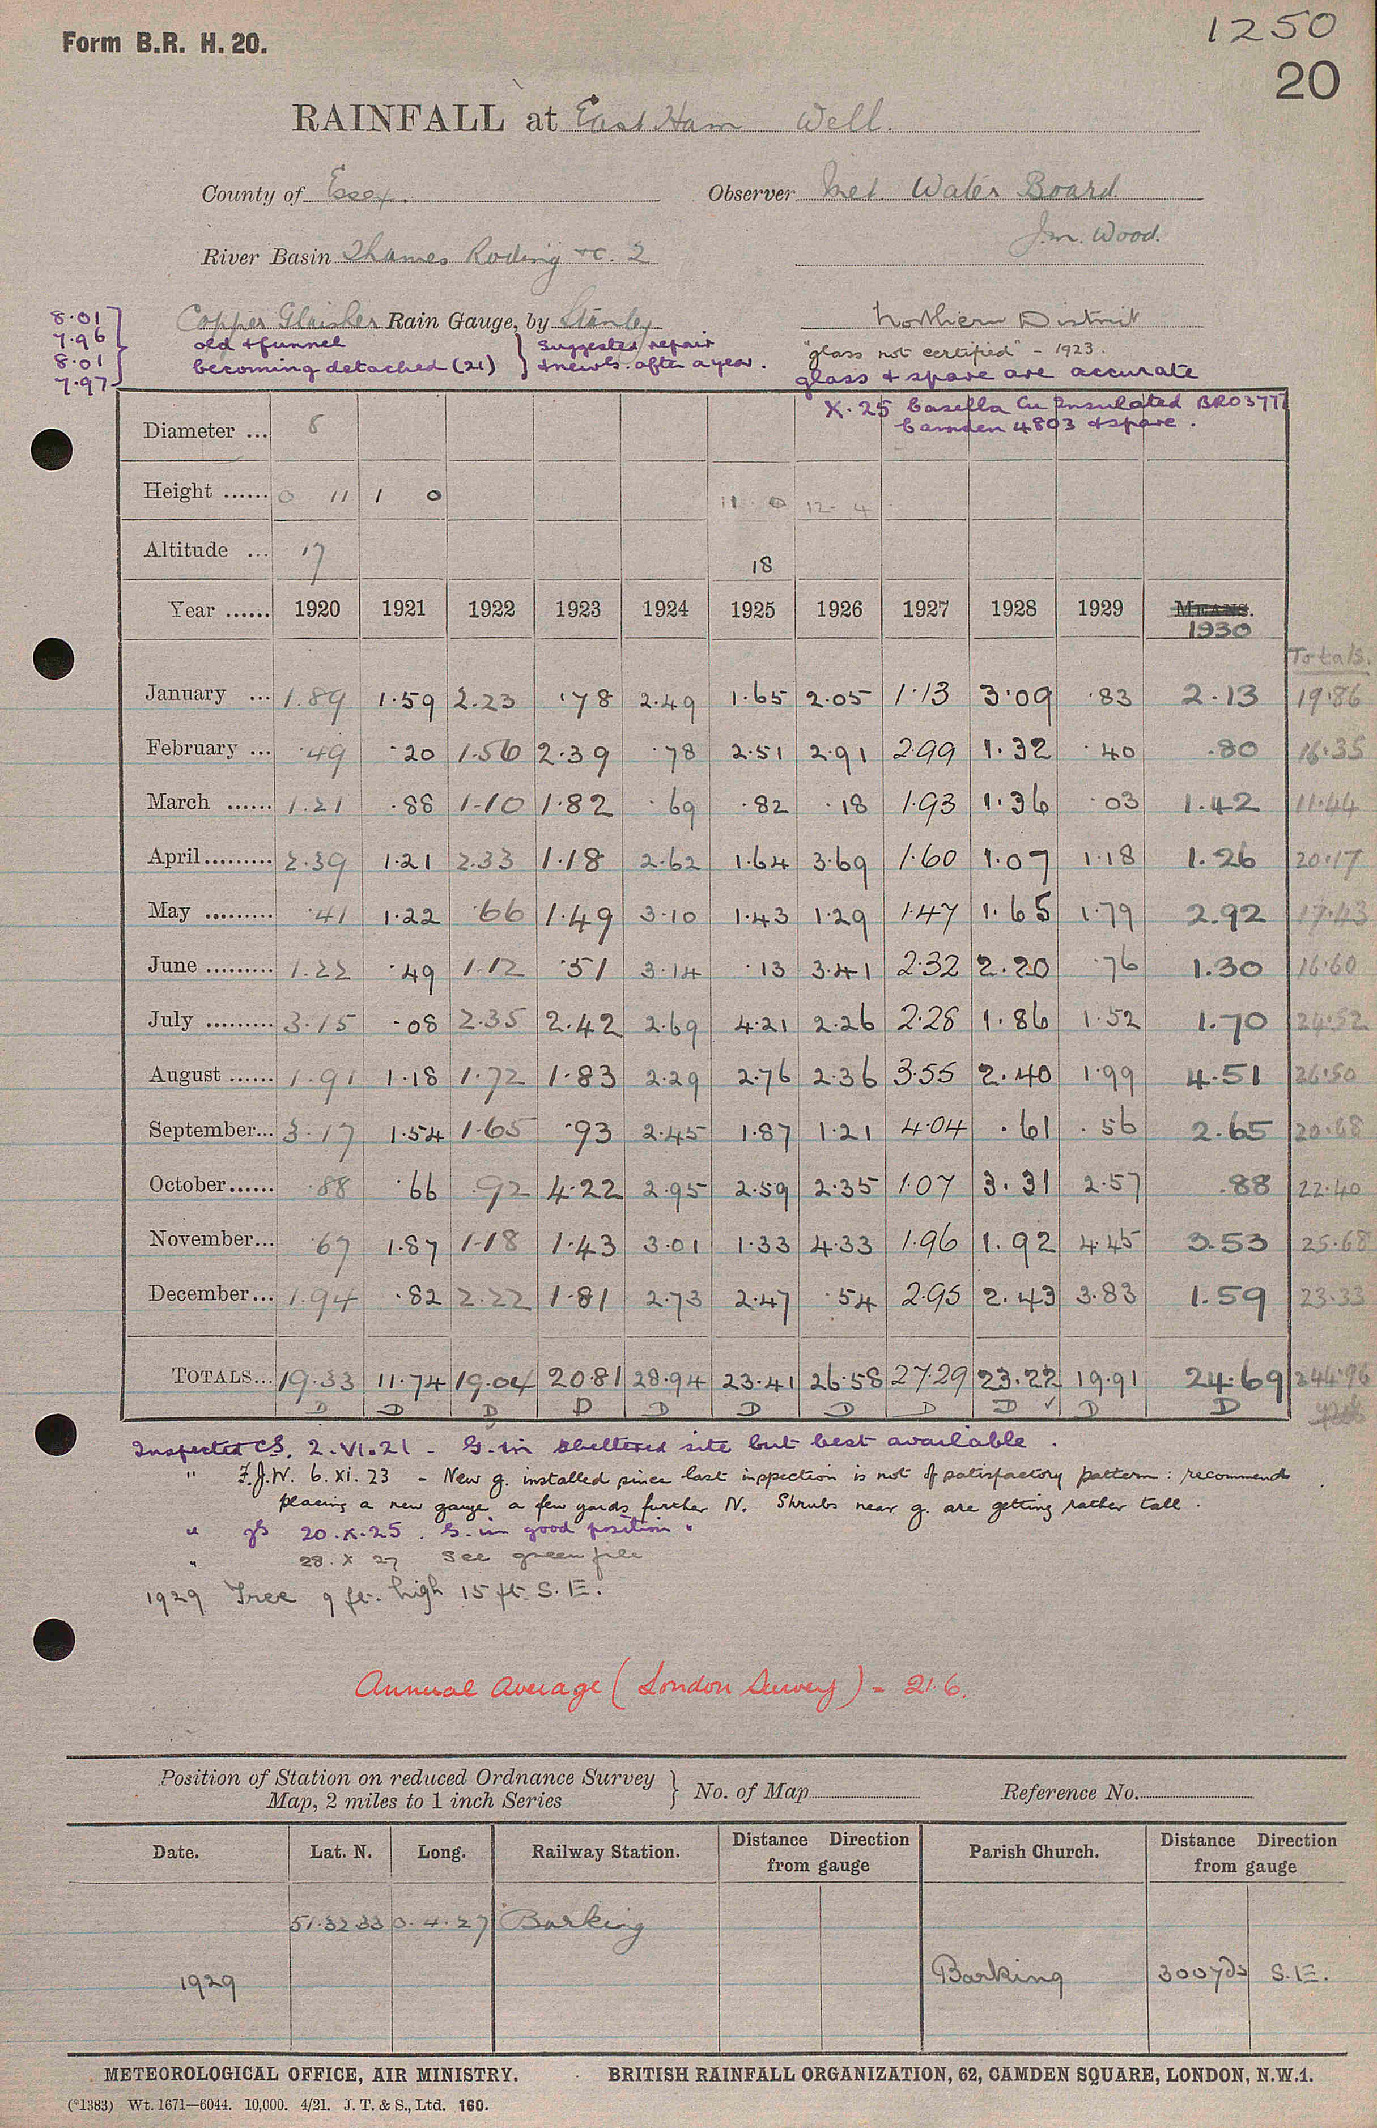 Form B.R. H. 20.
1250
20
RAINFALL at East Ham Well.
County of Essex.
Observer Met. Water Board
J.M. Wood.
River Basin Thames Roding &c. 2
Copper Glaisher Rain Gauge, by Stanley
Northern District
8.01
7.96
8.01
7.97
old & funnel
becoming detached (21)
Suggested repair
& new b. after a year.
"glass not certified" - 1923.
glass & spare are accurate
X.25 Casella Cu Insulated BR0377
Camden 4803 & spare.
Diameter ... 8
Height ...... 0 11 1 0 11 0 12. 4
Altitude ... 17 18
Year ...... 1920 1921 1922 1923 1924 1925 1926 1927 1928 1929 MEANS. 1930
Totals.
January ... 1.89 1.59 2.23 .78 2.49 1.65 2.05 1.13 3.09 .83 2.13 19.86
February ... .49 .20 1.56 2.39 .78 2.51 2.91 2.99 1.32 .40 .80 16.35
March ...... 1.21 .88 1.10 1.82 .69 .82 .18 1.93 1.36 .03 1.42 11.44
April......... 2.39 1.21 2.33 1.18 2.62 1.64 3.69 1.60 1.07 1.18 1.26 20.17
May ......... .41 1.22 .66 1.49 3.10 1.43 1.29 1.47 1.65 1.79 2.92 17.43
June ......... 1.22 .49 1.12 .51 3.14 .13 3.41 2.32 2.20 .76 1.30 16.60
July ......... 3.15 .08 2.35 2.42 2.69 4.21 2.26 2.28 1.86 1.52 1.70 24.52
August ...... 1.91 1.18 1.72 1.83 2.29 2.76 2.36 3.55 2.40 1.99 4.51 26.50
September... 3.17 1.54 1.65 .93 2.45 1.87 1.21 4.04 .61 .56 2.65 20.68
October...... .88 .66 .92 4.22 2.95 2.59 2.35 1.07 3.31 2.57 .88 22.40
November... .67 1.87 1.18 1.43 3.01 1.33 4.33 1.96 1.92 4.45 3.53 25.68
December... 1.94 .82 2.22 1.81 2.73 2.47 .54 2.95 2.43 3.83 1.59 23.33
TOTALS... 19.33 11.74 19.04 20.81 28.94 23.41 26.58 27.29 23.22 19.91 24.69 244.96
D D D D D D D D D ✓ D D
Inspected CS. 2.VI.21 - G. in sheltered site but best available.
" F.J.W. 6.XI.23 - New g. installed since last inspection is not of satisfactory pattern: recommend
placing a new gauge a few yards further N. Shrubs near g. are getting rather tall.
" 20.X.25. G. in good position.
" 28.X 27 See green file
1929 Tree 9 ft. high 15 ft. S.E.
Annual Average (London Survey) = 21.6.
Position of Station on reduced Ordnance Survey
Map, 2 miles to 1 inch Series
No. of Map
Reference No.
Date. Lat. N. Long. Railway Station. Distance Direction from gauge Parish Church. Distance Direction from gauge
51.32.33 0.4.27 Barking
1929 Barking 300 yds S.E.
METEOROLOGICAL OFFICE, AIR MINISTRY. BRITISH RAINFALL ORGANIZATION, 62, CAMDEN SQUARE, LONDON, N.W.1.
(*1383) Wt. 1671—6044. 10,000. 4/21. J. T. & S., Ltd. 160.